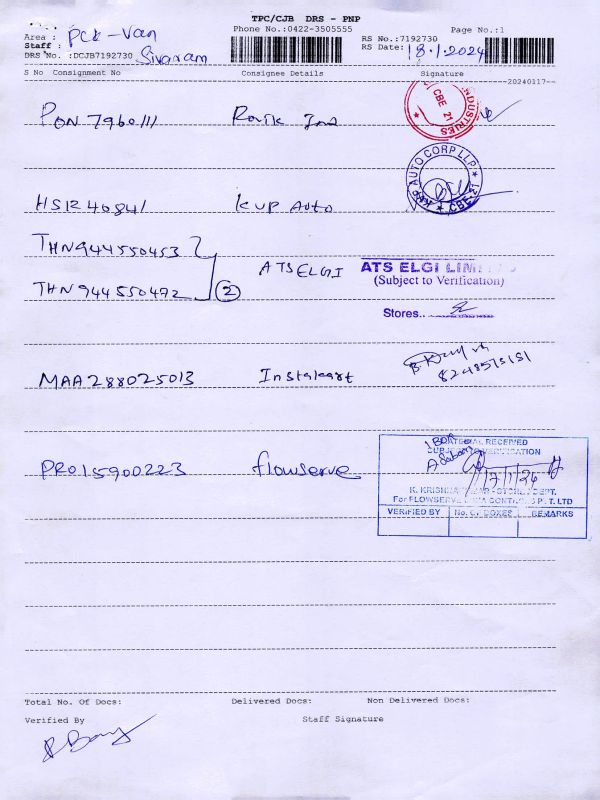 TPC/CJB DRS - PNP
Phone No.:0422-3505555
Page No.:1
Area : PCK-Van
RS No.:7192730
Staff : Sivaram
RS Date: 18.1.2024
DRS No. :DCJB7192730
S No Consignment No Consignee Details Signature
--20240117--
PON 7960111
INDUSTRIES CBE 21
AUTO CORP LLP CBE-21
HSR240841 KVP Auto
THN944550453
THN944550472 (2) ATS ELGI
ATS ELGI
(Subject to Verification)
Stores..
MAA288025013 Instakart
8248575151
PRO15900223 flowserve
MATERIAL RECEIVED
SUBJECT TO VERIFICATION
17/1/24
For FLOWSERVE
VERIFIED BY No. OF BOXES REMARKS
Total No. Of Docs: Delivered Docs: Non Delivered Docs:
Verified By Staff Signature